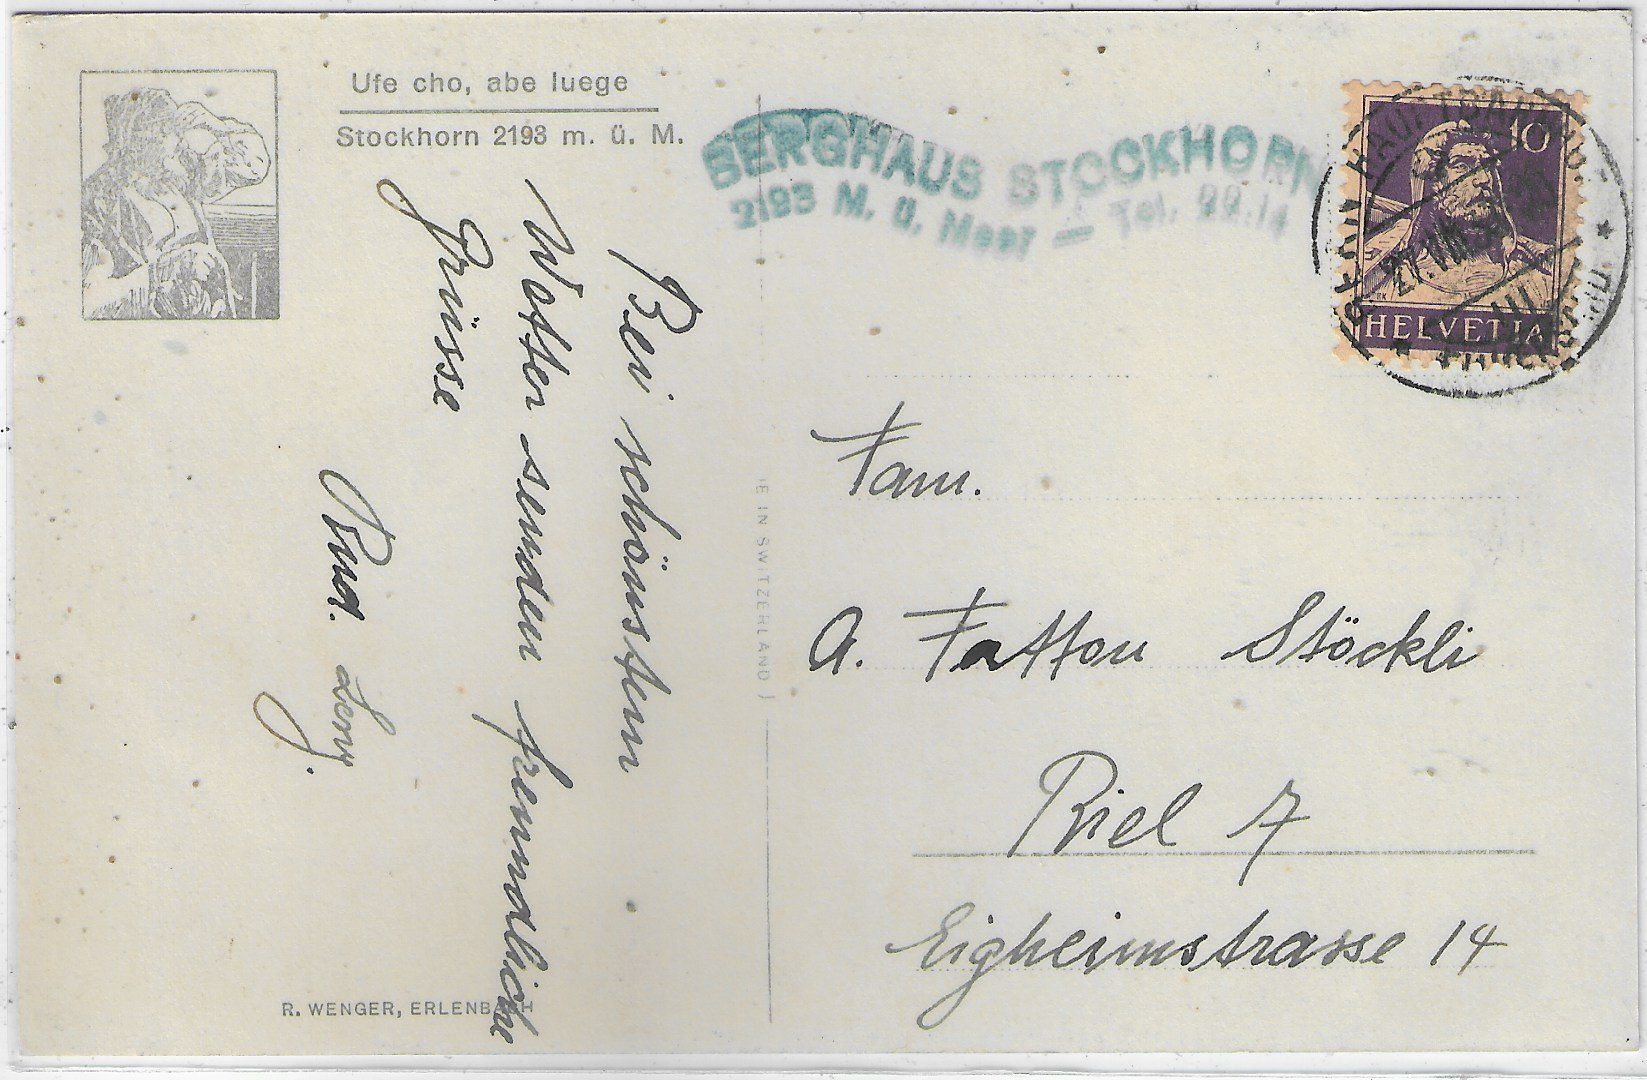 Ufe cho, abe luege
Stockhorn 2193 m. ü. M.
BERGHAUS STOCKHORN
2193 M. ü. Meer — Tel.
10
HELVETIA
Bei schönstem
Wetter senden freundliche
Grüsse
Fam.
A. Fatton Stöckli
Biel 7
Eigheimstrasse 14
IN SWITZERLAND
R. WENGER, ERLENBACH